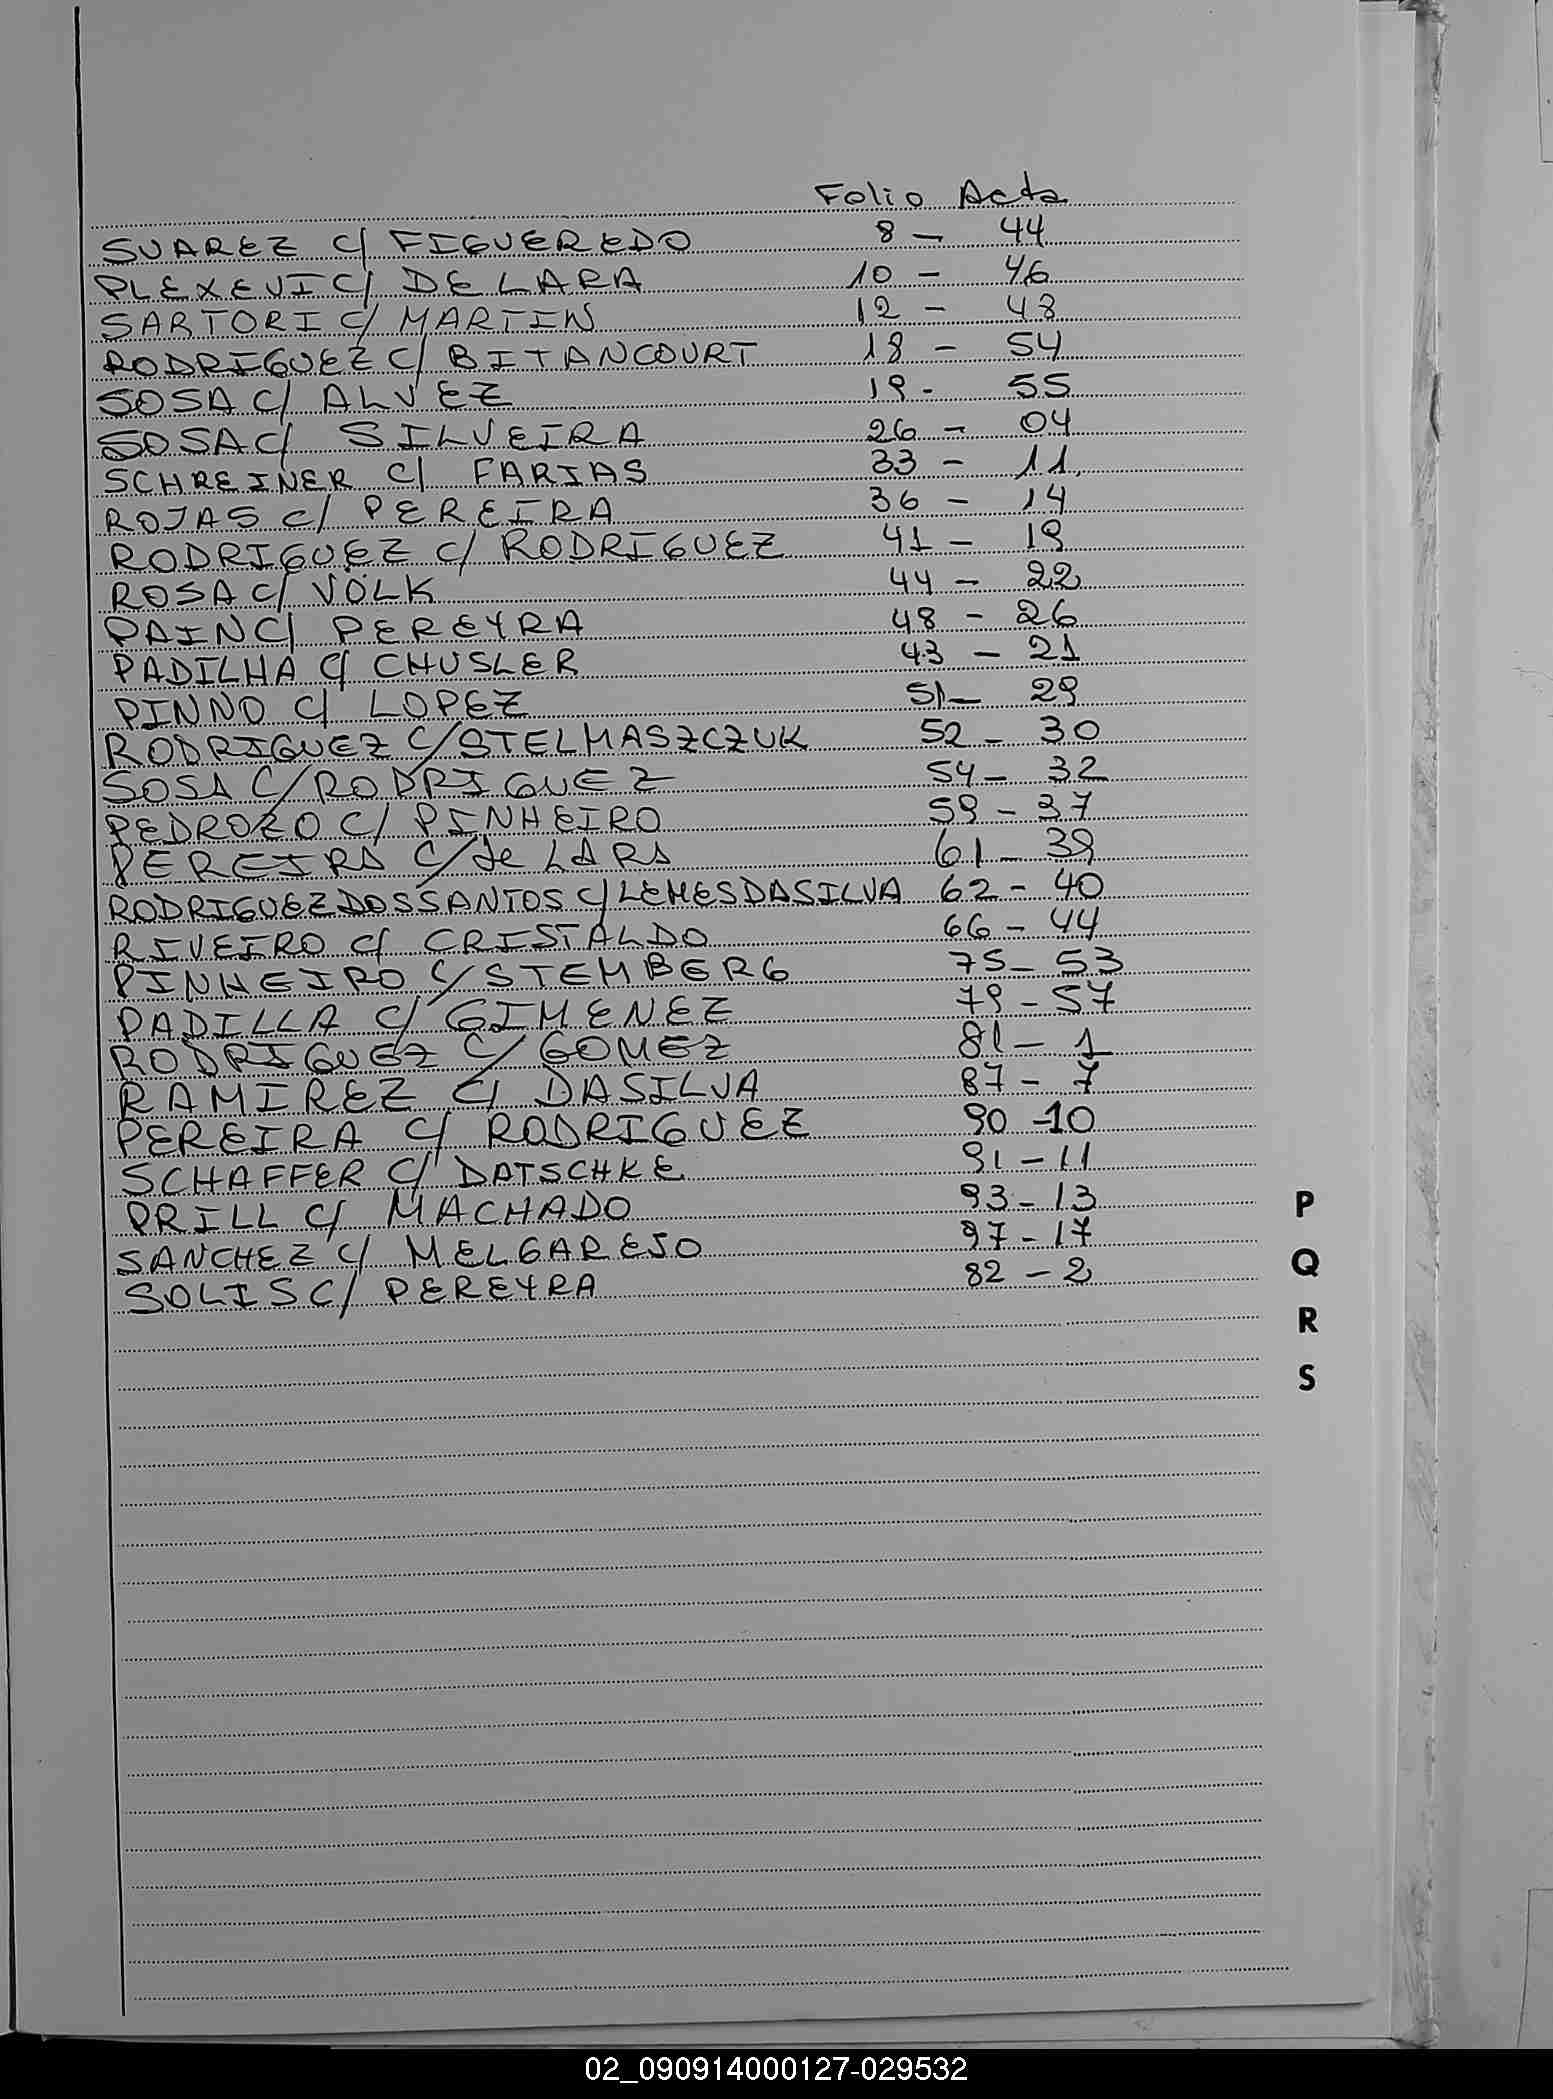 Folio Acta
SUAREZ C/ FIGUEREDO 8 - 44
PLEXEVIC/ DE LARA 10 - 46
SARTORI C/ MARTIN 12 - 48
RODRIGUEZ C/ BITANCOURT 18 - 54
SOSA C/ ALVEZ 19 - 55
SOSA C/ SILVEIRA 26 - 04
SCHREINER C/ FARIAS 33 - 11
ROJAS C/ PEREIRA 36 - 14
RODRIGUEZ C/ RODRIGUEZ 41 - 19
ROSA C/ VOLK 44 - 22
PAIN C/ PEREYRA 48 - 26
PADILHA C/ CHUSLER 43 - 21
PINNO C/ LOPEZ 51 - 29
RODRIGUEZ C/ STELMASZCZUK 52 - 30
SOSA C/ RODRIGUEZ 54 - 32
PEDROZO C/ PINHEIRO 59 - 37
PEREIRA C/ de LARA 61 - 39
RODRIGUEZ DOS SANTOS C/ LEMES DA SILVA 62 - 40
RIVEIRO C/ CRISTALDO 66 - 44
PINHEIRO C/ STEMBERG 75 - 53
PADILLA C/ GIMENEZ 79 - 57
RODRIGUEZ C/ GOMEZ 81 - 1
RAMIREZ C/ DASILVA 87 - 7
PEREIRA C/ RODRIGUEZ 90 - 10
SCHAFFER C/ DATSCHKE 91 - 11
PRILL C/ MACHADO 93 - 13
SANCHEZ C/ MELGAREJO 97 - 17
SOLIS C/ PEREYRA 82 - 2
P
Q
R
S
02_090914000127-029532